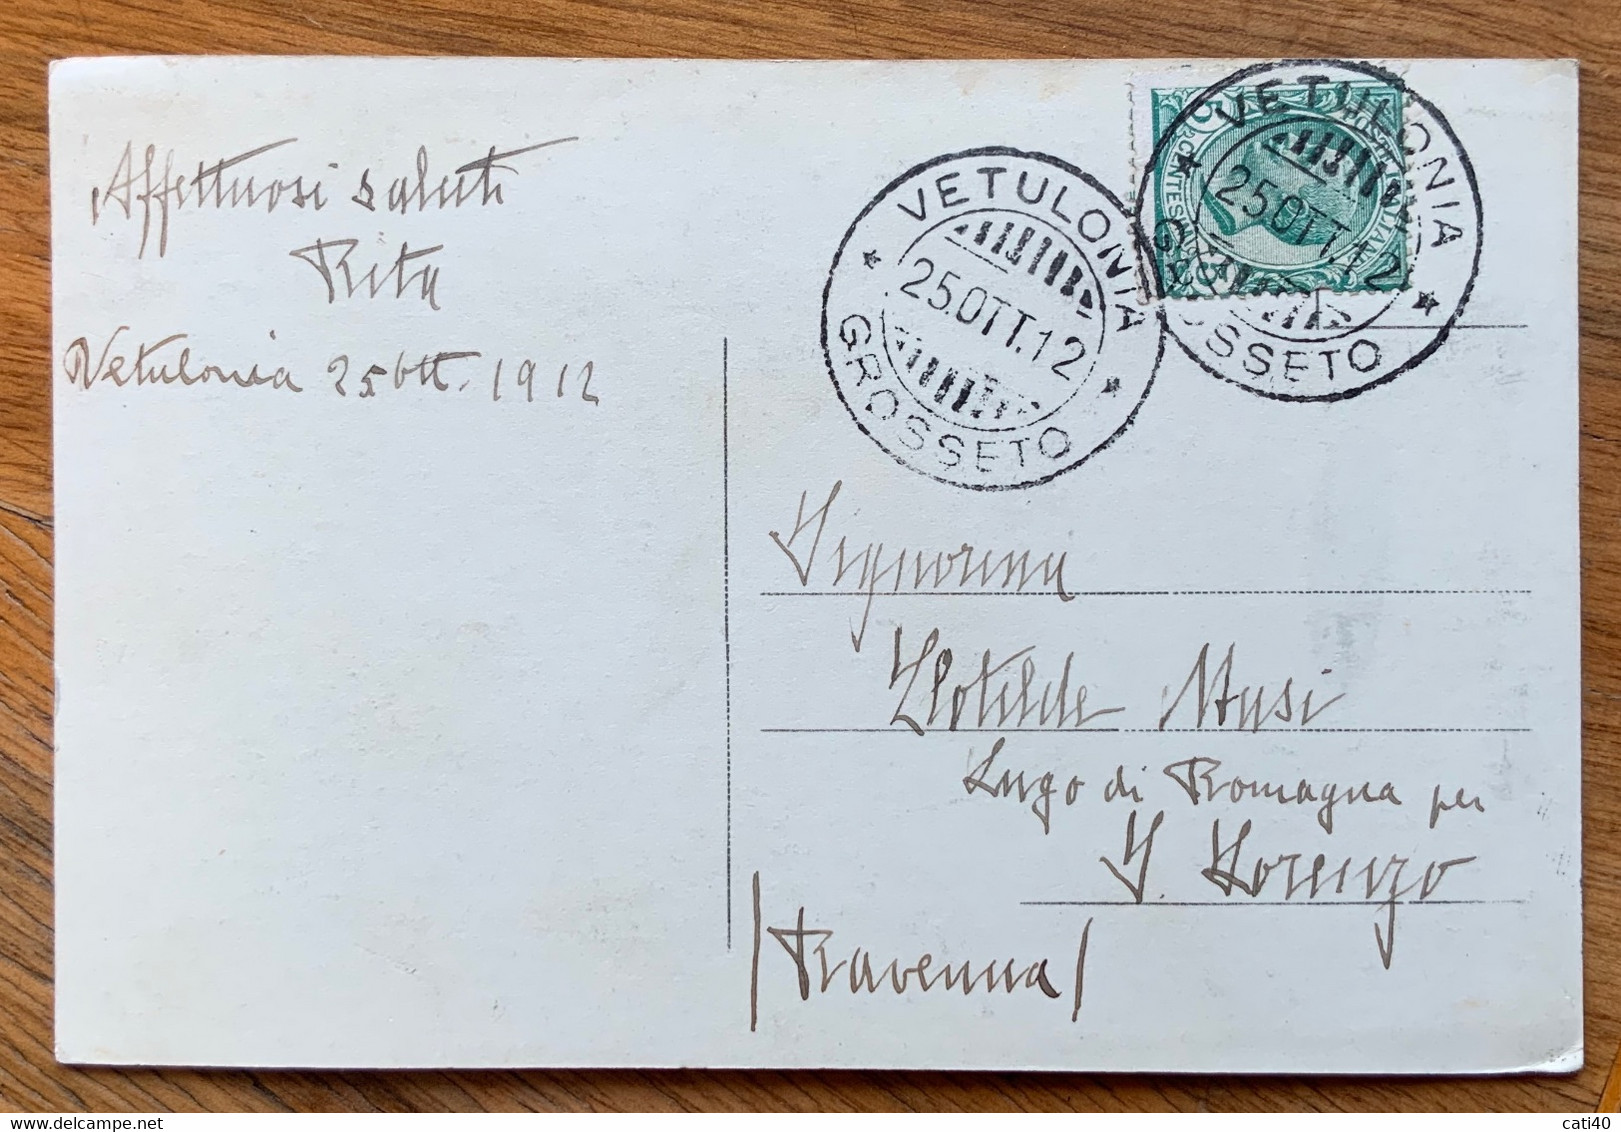 Affettuosi saluti
Rita
Vetulonia 25 Ott. 1912
VETULONIA
25.OTT.12
GROSSETO
VETULONIA
25.OTT.12
GROSSETO
Signorina
Clotilde Musi
Lugo di Romagna per
S. Lorenzo
/Ravenna/
delcampe.net
cati40